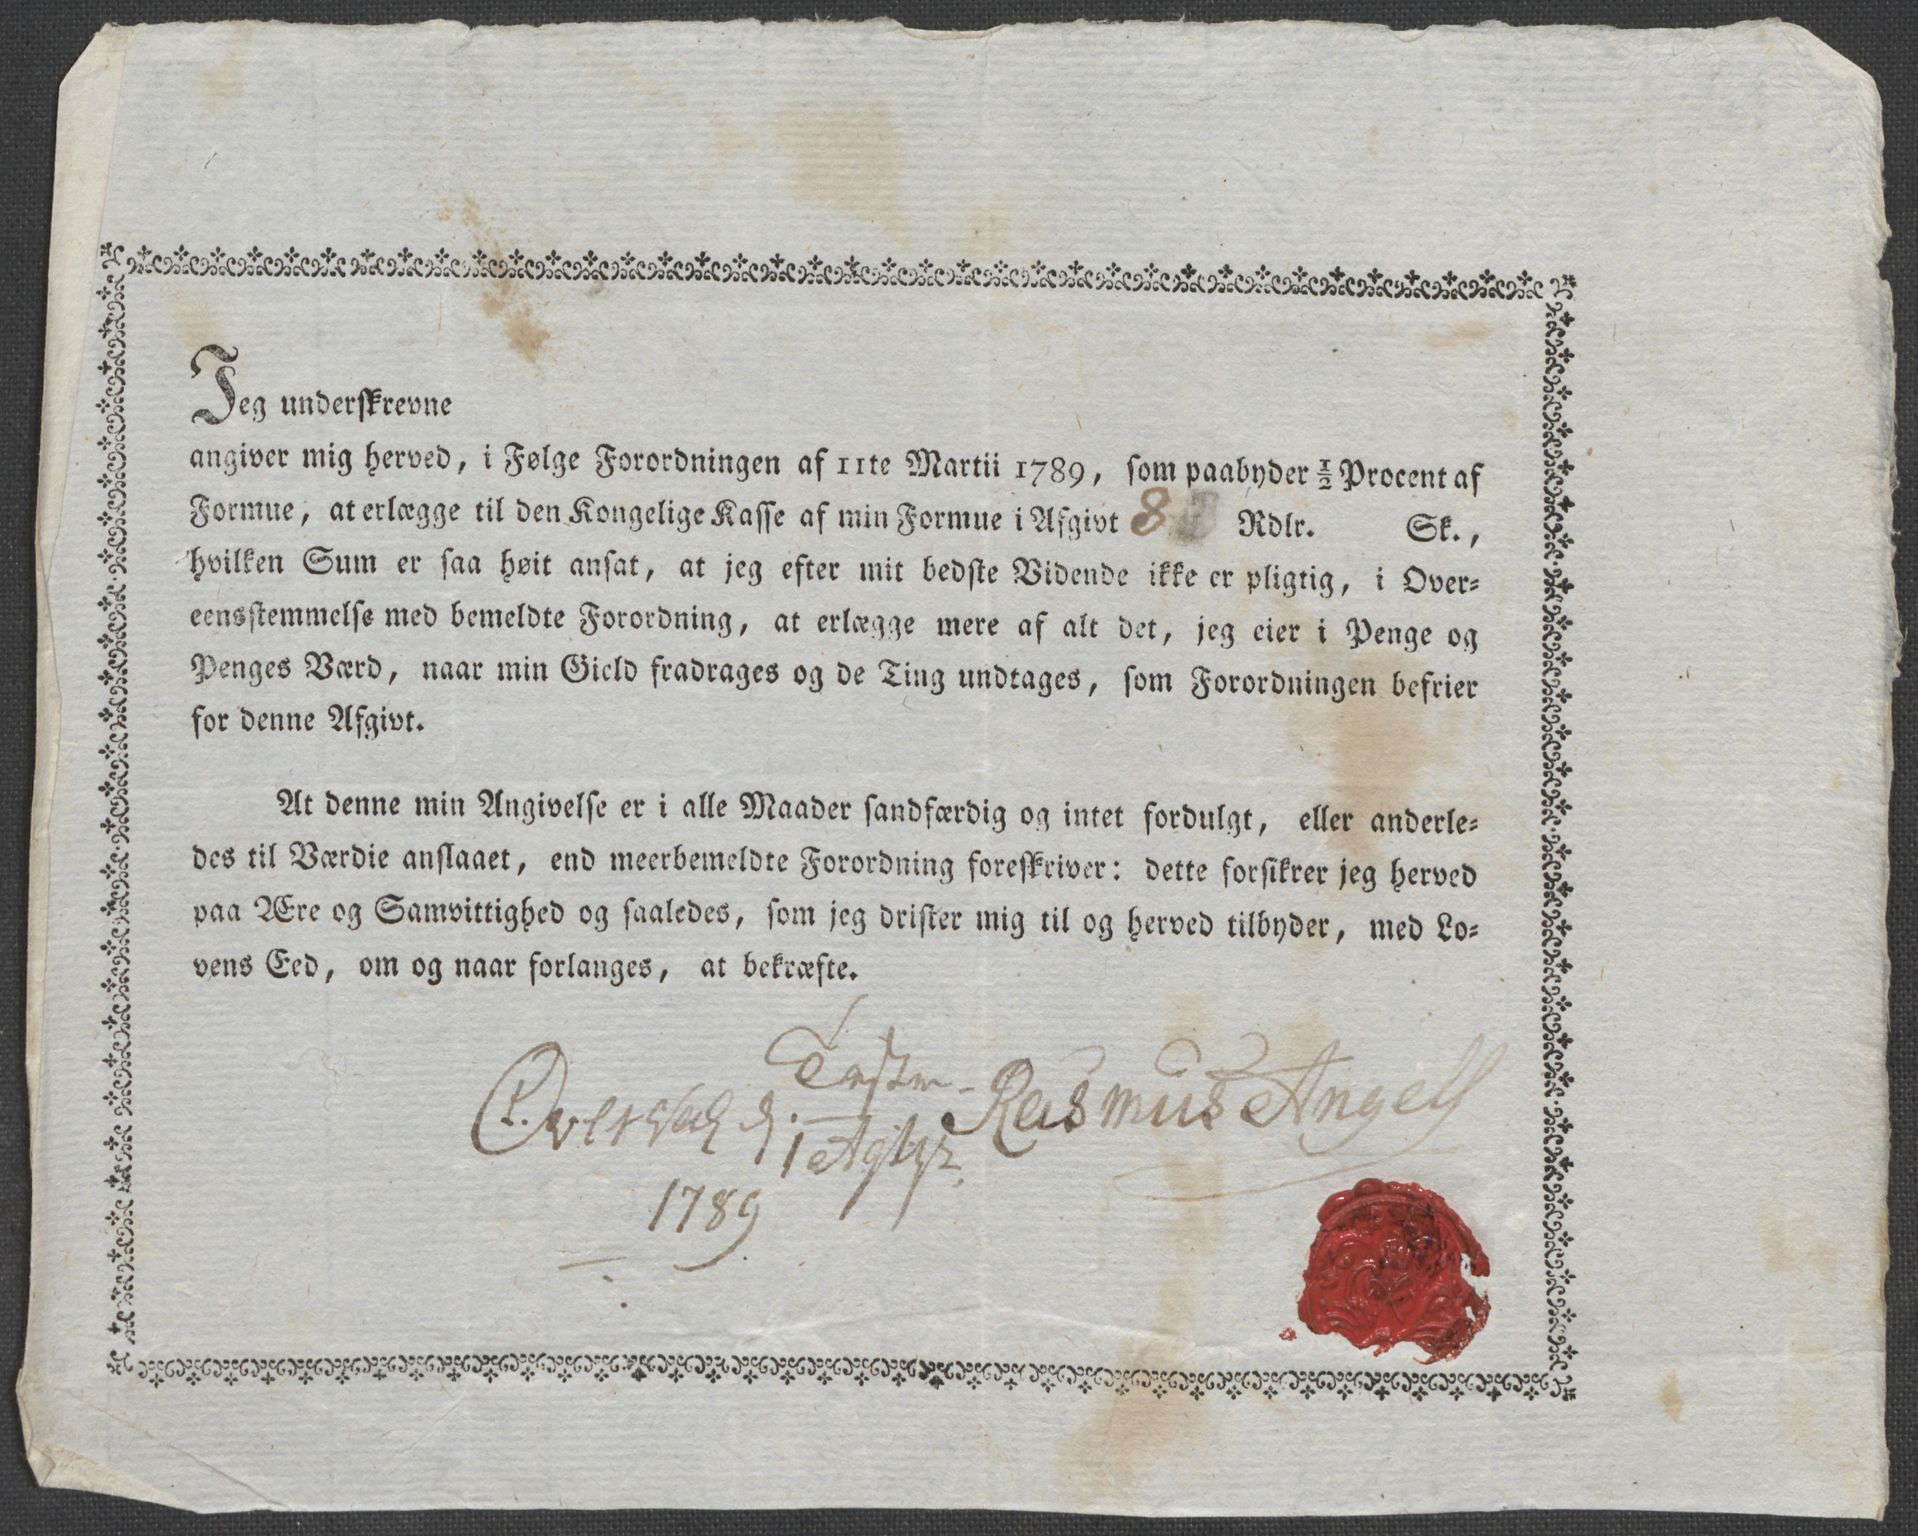 Jeg underskrevne
angiver mig herved, i Følge Forordningen af 11te Martii 1789, som paabyder ½ Procent af
Formue, at erlægge til den Kongelige Kasse af min Formue i Afgivt 8 Rdlr. Sk.,
hvilken Sum er saa høit ansat, at jeg efter mit bedste Vidende ikke er pligtig, i Over-
eensstemmelse med bemeldte Forordning, at erlægge mere af alt det, jeg eier i Penge og
Penges Værd, naar min Gield fradrages og de Ting undtages, som Forordningen befrier
for denne Afgivt.
At denne min Angivelse er i alle Maader sandfærdig og intet fordulgt, eller anderle-
des til Værdie anslaaet, end meerbemeldte Forordning foreskriver: dette forsikrer jeg herved
paa Ære og Samvittighed og saaledes, som jeg drister mig til og herved tilbyder, med Lo-
vens Eed, om og naar forlanges, at bekræfte.
Rasmus Angell
1789